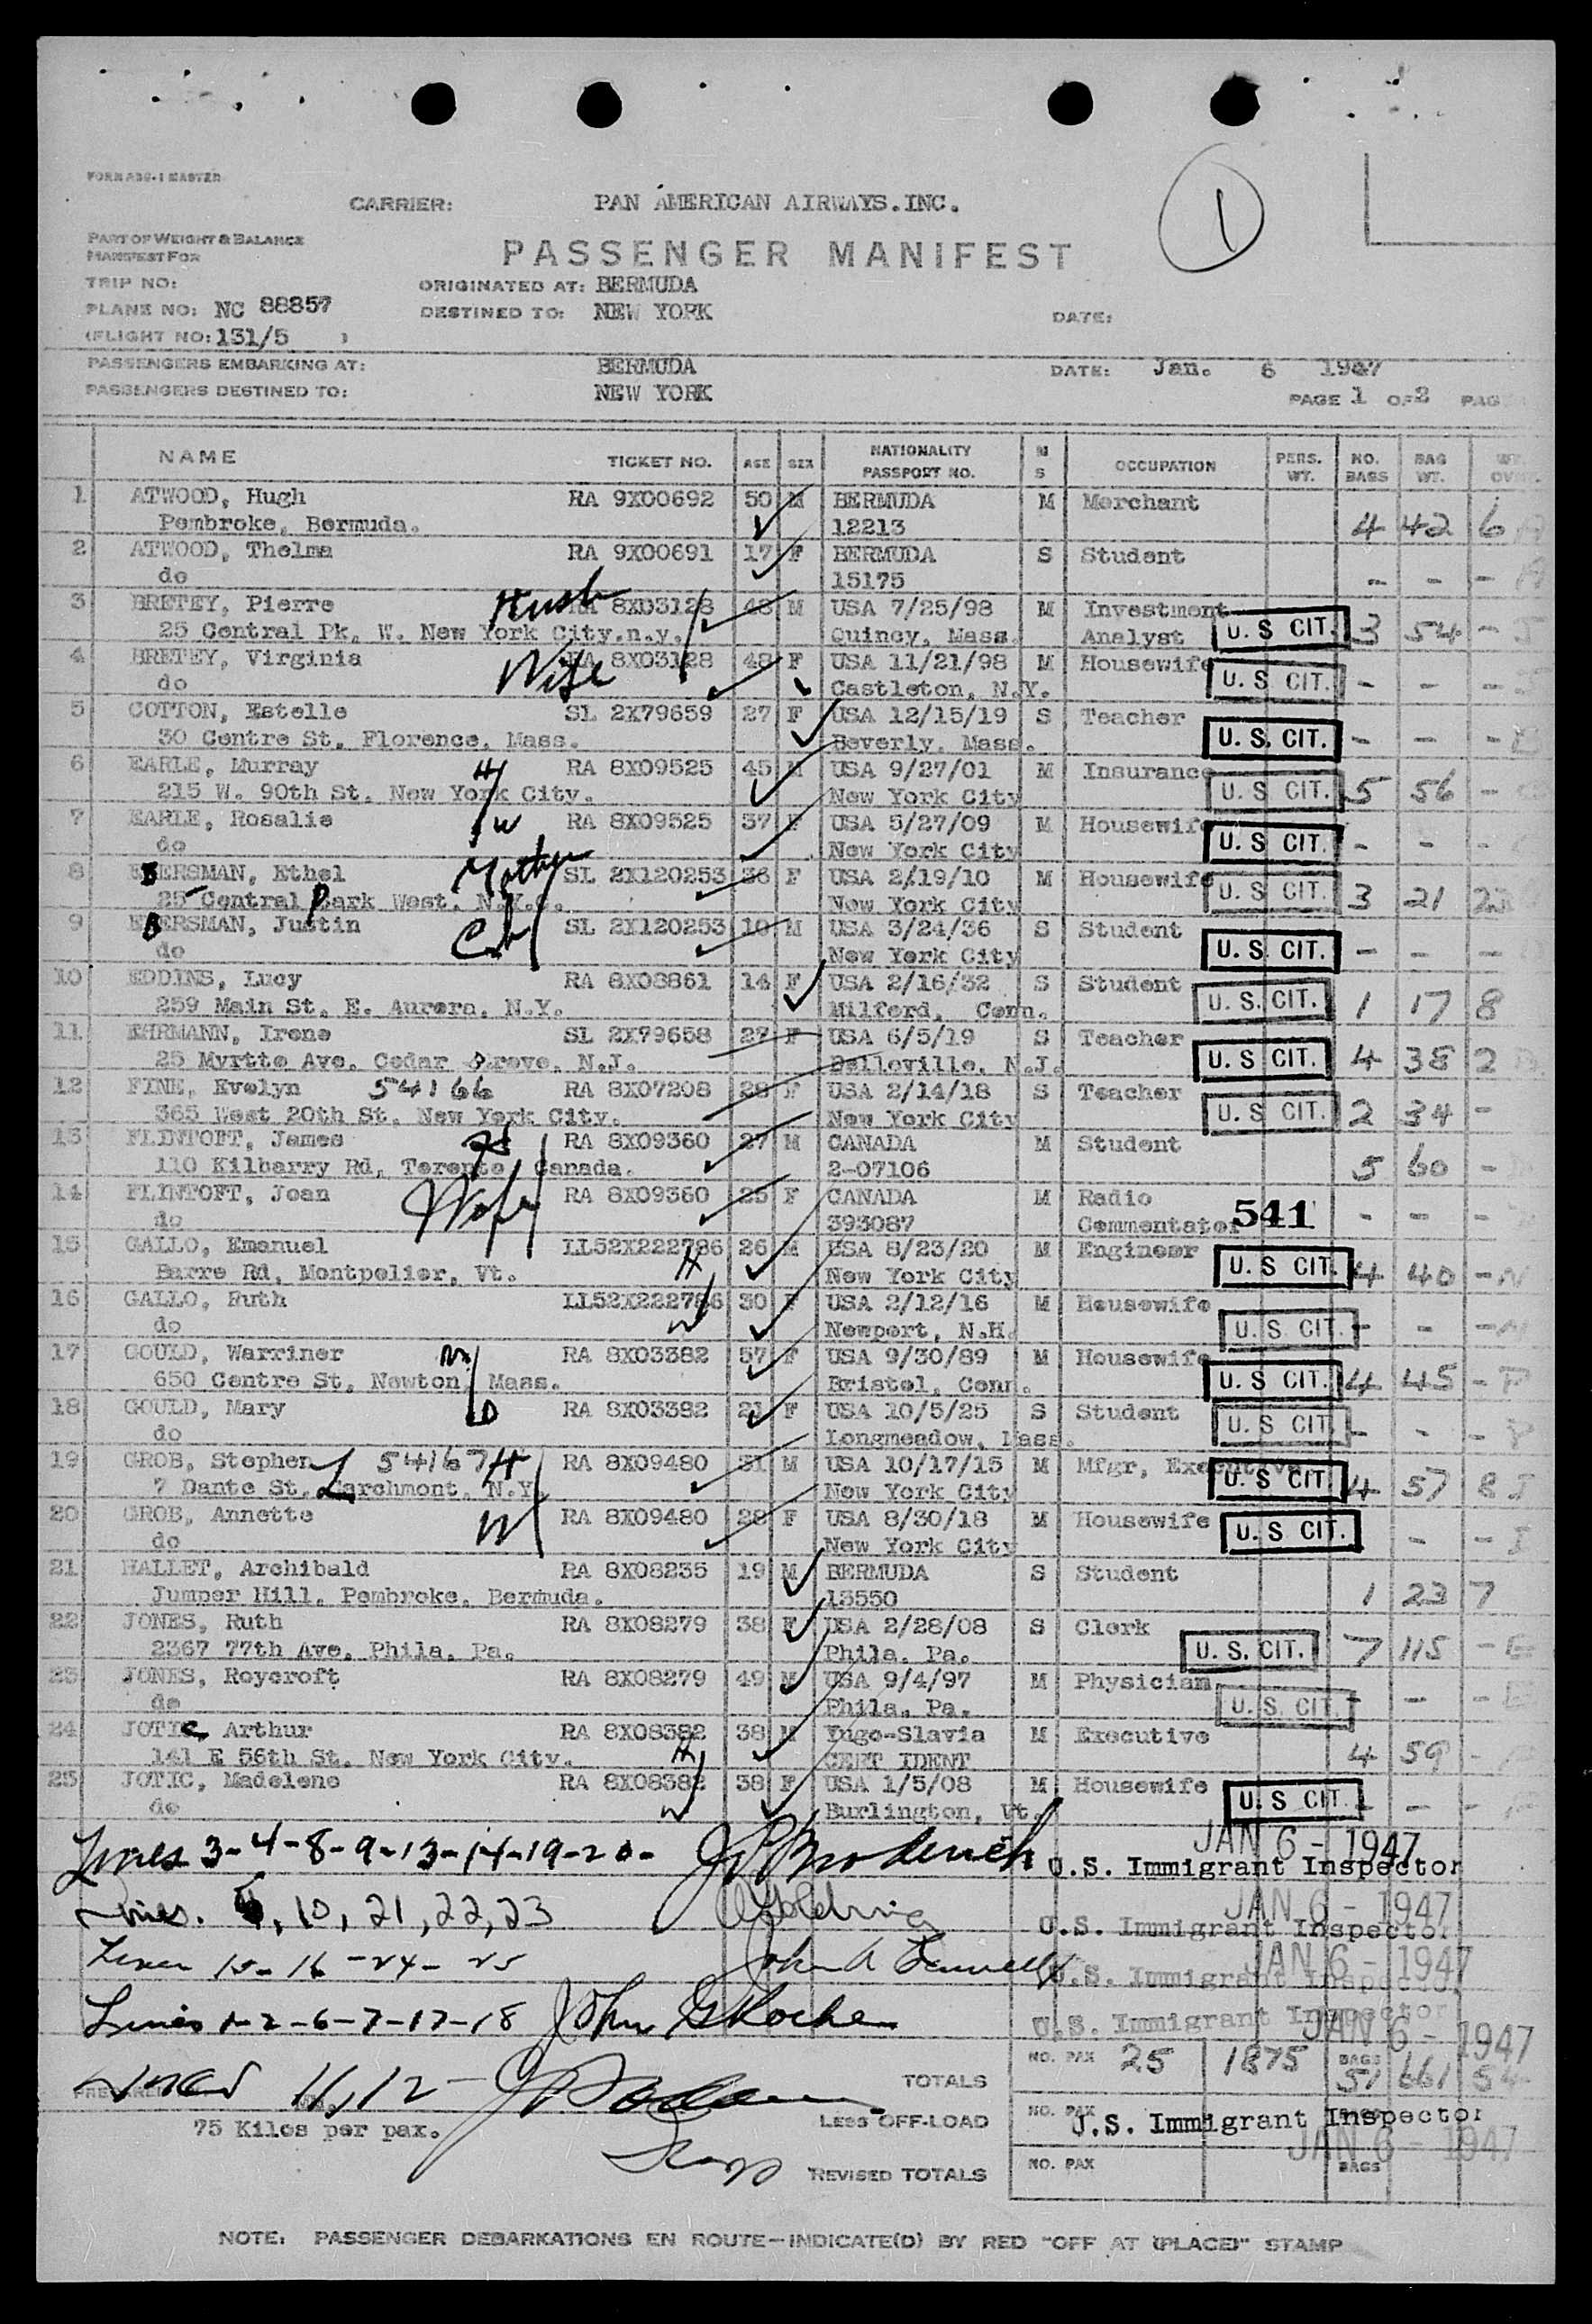 FORM ABG-1 MASTER
1
CARRIER: PAN AMERICAN AIRWAYS.INC.
PART OF WEIGHT & BALANCE
MANIFEST FOR
PASSENGER MANIFEST
TRIP NO: ORIGINATED AT: BERMUDA
PLANE NO: NC 88857 DESTINED TO: NEW YORK DATE:
(FLIGHT NO: 131/5 )
PASSENGERS EMBARKING AT: BERMUDA DATE: Jan. 6 1947
PASSENGERS DESTINED TO: NEW YORK
PAGE 1 OF 2 PAG
NAME TICKET NO. AGE SEX NATIONALITY PASSPORT NO. M S OCCUPATION PERS. WT. NO. BAGS BAG WT. WT.
1 ATWOOD, Hugh RA 9X00692 50 M BERMUDA M Merchant
Pembroke, Bermuda. 12213 4 42 6
2 ATWOOD, Thelma RA 9X00691 17 F BERMUDA S Student
do 15175 - - -
3 BRETEY, Pierre Husb RA 8X03128 48 M USA 7/25/98 M Investment
25 Central Pk, W. New York City.n.y. Quincy, Mass. Analyst U.S CIT. 3 54 -
4 BRETEY, Virginia Wife RA 8X03128 48 F USA 11/21/98 M Housewife
do Castleton, N.Y. U.S CIT. - - -
5 COTTON, Estelle SL 2X79659 27 F USA 12/15/19 S Teacher
30 Centre St, Florence, Mass. Beverly, Mass. U.S. CIT. - - -
6 EARLE, Murray H RA 8X09525 45 M USA 9/27/01 M Insurance
215 W. 90th St. New York City. New York City U.S CIT. 5 56 -
7 EARLE, Rosalie W RA 8X09525 37 F USA 5/27/09 M Housewife
do New York City U.S CIT. - - -
8 EBERSMAN, Ethel Mother SL 2X120253 36 F USA 2/19/10 M Housewife
25 Central Park West, N.Y.C. New York City U.S CIT. 3 21 23
9 EBERSMAN, Justin Ch SL 2X120253 10 M USA 3/24/36 S Student
do New York City U.S CIT. - - -
10 EDDINS, Lucy RA 8X08861 14 F USA 2/16/32 S Student
259 Main St. E. Aurora, N.Y. Milford, Conn. U.S. CIT. 1 17 8
11 EHRMANN, Irene SL 2X79658 27 F USA 6/5/19 S Teacher
25 Myrtte Ave. Cedar Grove, N.J. Belleville, N.J. U.S CIT. 4 38 2
12 FINE, Evelyn 54166 RA 8X07208 28 F USA 2/14/18 S Teacher
365 West 20th St. New York City. New York City U.S CIT. 2 34 -
13 FLINTOFT, James RA 8X09360 27 M CANADA M Student
110 Kilbarry Rd, Toronto, Canada. 2-07106 5 60 -
14 FLINTOFT, Joan Wife RA 8X09360 25 F CANADA M Radio
do 393087 Commentator 541 - - -
15 GALLO, Emanuel LL52X222786 26 M USA 8/23/20 M Engineer
Barre Rd, Montpelier, Vt. H New York City U.S CIT. 4 40 - N
16 GALLO, Ruth LL52X222786 30 F USA 2/12/16 M Housewife
do W Newport, N.H. U.S CIT. - - - N
17 GOULD, Warriner M RA 8X03382 57 F USA 9/30/89 M Housewife
650 Centre St, Newton, Mass. Bristol, Conn. U.S CIT. 4 45 - P
18 GOULD, Mary D RA 8X03382 21 F USA 10/5/25 S Student
do Longmeadow, Mass. U.S CIT. - - - P
19 GROB, Stephen 54167 H RA 8X09480 31 M USA 10/17/15 M Mfgr, Executive
7 Dante St, Larchmont, N.Y. New York City U.S CIT. 4 57 8 I
20 GROB, Annette W RA 8X09480 28 F USA 8/30/18 M Housewife
do New York City U.S CIT. - - I
21 HALLET, Archibald RA 8X08235 19 M BERMUDA S Student
Jumper Hill, Pembroke, Bermuda. 13550 1 23 7
22 JONES, Ruth RA 8X08279 38 F USA 2/28/08 S Clerk
2367 77th Ave, Phila, Pa. Phila. Pa. U.S. CIT. 7 115 - E
23 JONES, Roycroft RA 8X08279 49 M USA 9/4/97 M Physician
do Phila. Pa. U.S. CIT. - - - E
24 JOTIC, Arthur RA 8X08382 38 M Yugo-Slavia M Executive
141 E 56th St. New York City. H CERT IDENT 4 59 -
25 JOTIC, Madelene RA 8X08382 38 F USA 1/5/08 M Housewife
do W Burlington, Vt. U.S CIT. - - -
JAN 6 - 1947
Lines 3-4-8-9-13-14-19-20- U.S. Immigrant Inspector
JAN 6 - 1947
Lines. 5, 10, 21, 22, 23 U.S. Immigrant Inspector
JAN 6 - 1947
Lines 15-16-24-25 U.S. Immigrant Inspector
Lines 1-2-6-7-17-18 John G Roche U.S. Immigrant Inspector
JAN 6 - 1947
NO. PAX 25 1875 BAGS 51 661 54
Lines 11, 12 - TOTALS
75 Kilos per pax. LESS OFF-LOAD NO. PAX U.S. Immigrant Inspector
JAN 6 - 1947
REVISED TOTALS NO. PAX BAGS
NOTE: PASSENGER DEBARKATIONS EN ROUTE-INDICATE(D) BY RED "OFF AT (PLACE)" STAMP